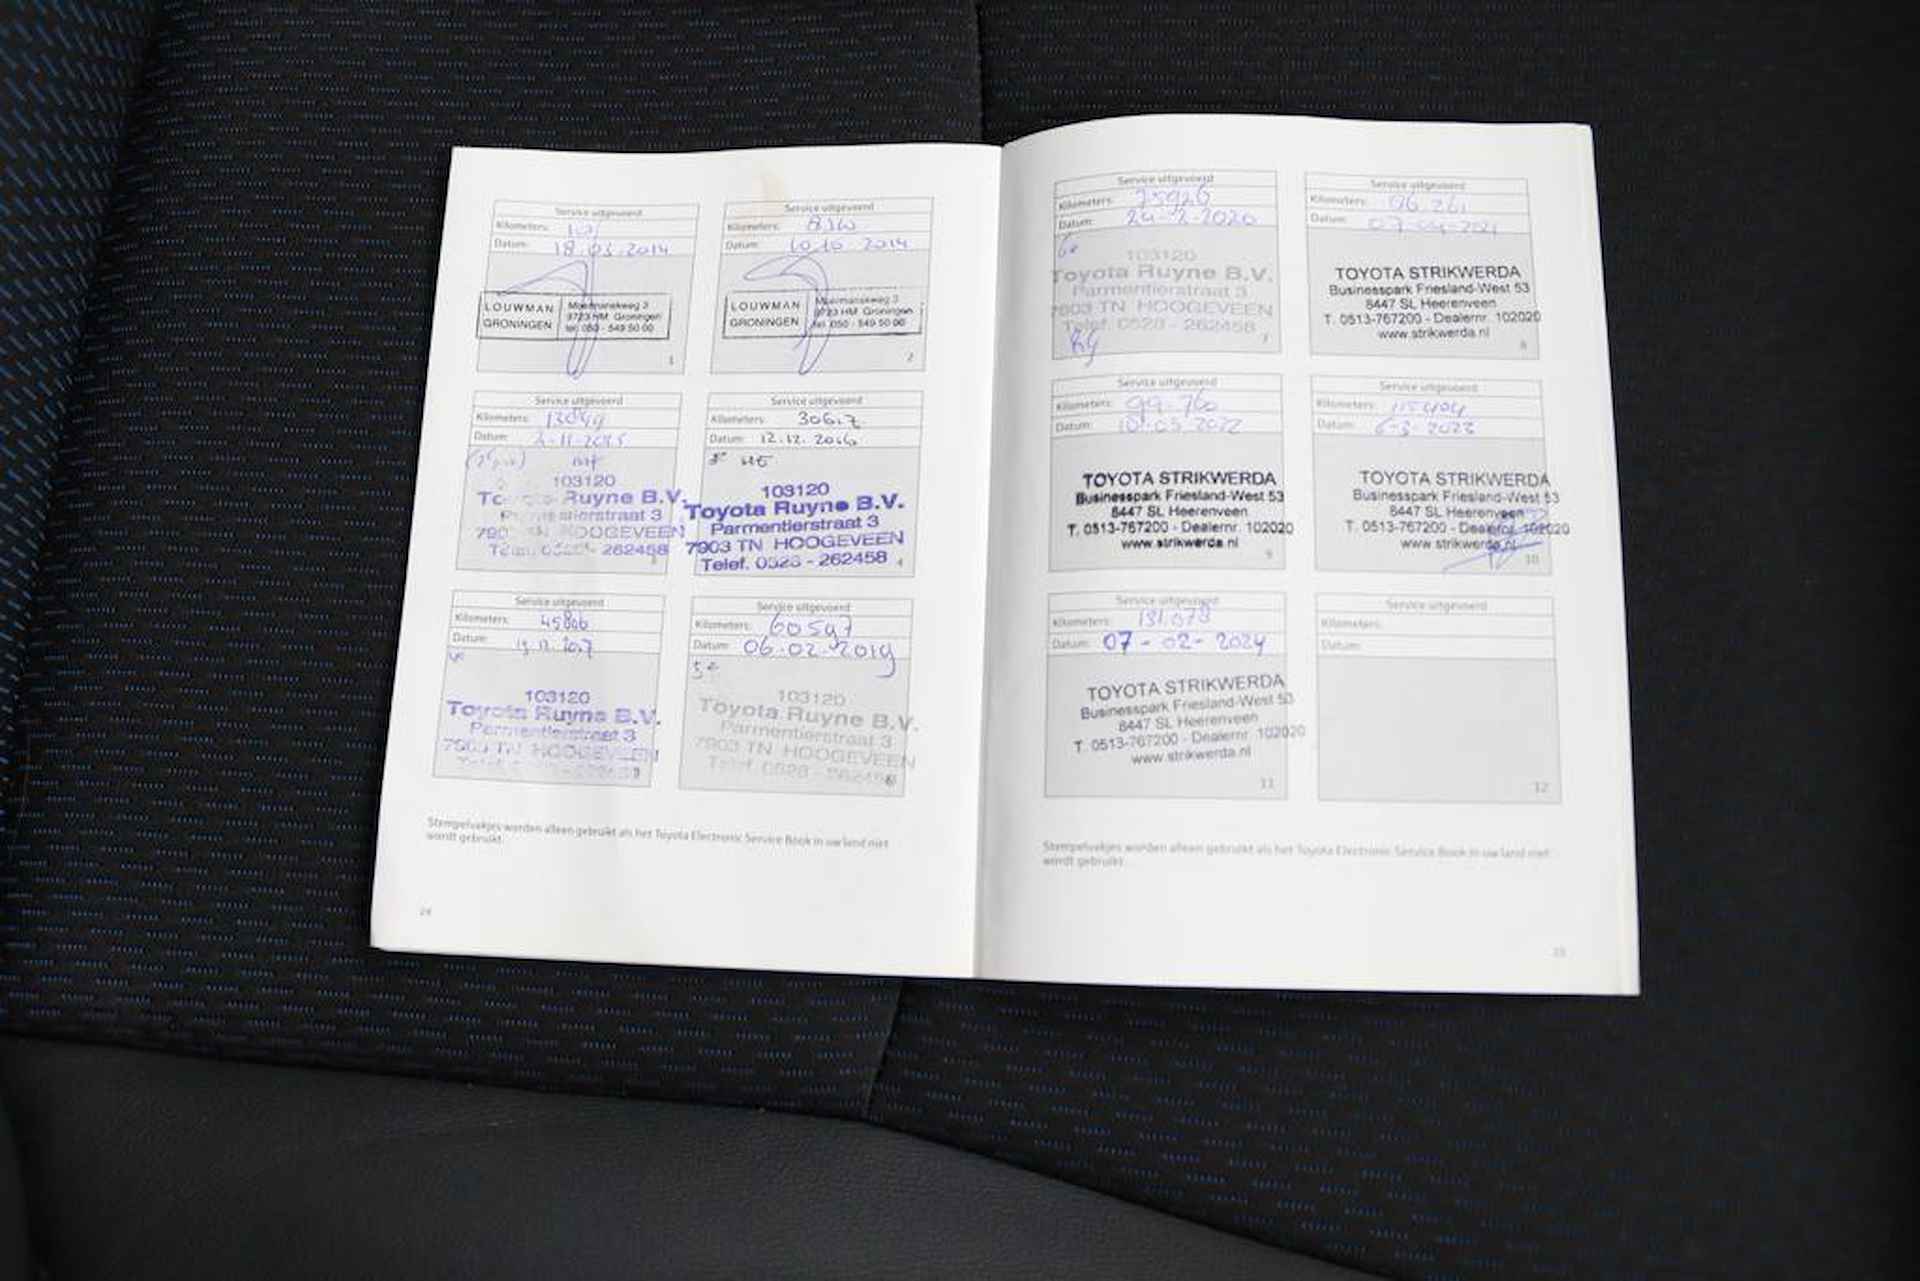 Service uitgevoerd
Kilometers:
Datum: 18.03.2014
LOUWMAN
GRONINGEN
Moermanskweg 3
9723 HM Groningen
tel. 050 - 549 50 00
1
Service uitgevoerd
Kilometers:
Datum: 10.10 2014
LOUWMAN
GRONINGEN
Moermanskweg 3
9723 HM Groningen
tel. 050 - 549 50 00
2
Service uitgevoerd
Kilometers:
Datum:
103120
Toyota Ruyne B.V.
Parmentierstraat 3
7903 TN HOOGEVEEN
Telef. 0528 - 262458
3
Service uitgevoerd
Kilometers:
Datum: 12.12.2016
103120
Toyota Ruyne B.V.
Parmentierstraat 3
7903 TN HOOGEVEEN
Telef. 0528 - 262458
4
Service uitgevoerd
Kilometers: 45806
Datum:
103120
Toyota Ruyne B.V.
Parmentierstraat 3
7903 TN HOOGEVEEN
Service uitgevoerd
Kilometers: 60597
Datum: 06.02.2019
103120
Toyota Ruyne B.V.
Parmentierstraat 3
7903 TN HOOGEVEEN
Telef. 0528 - 262458
6
Stempelvakjes worden alleen gebruikt als het Toyota Electronic Service Book in uw land niet
wordt gebruikt.
24
Service uitgevoerd
Kilometers: 75926
Datum: 24-2-2020
103120
Toyota Ruyne B.V.
Parmentierstraat 3
7903 TN HOOGEVEEN
Telef. 0528 - 262458
7
Service uitgevoerd
Kilometers: 96.261
Datum: 07-04-2021
TOYOTA STRIKWERDA
Businesspark Friesland-West 53
8447 SL Heerenveen
T. 0513-767200 - Dealernr. 102020
www.strikwerda.nl
8
Service uitgevoerd
Kilometers: 99.760
Datum: 10-05-2022
TOYOTA STRIKWERDA
Businesspark Friesland-West 53
8447 SL Heerenveen
T. 0513-767200 - Dealernr. 102020
www.strikwerda.nl
9
Service uitgevoerd
Kilometers: 115404
Datum: 6-3-2023
TOYOTA STRIKWERDA
Businesspark Friesland-West 53
8447 SL Heerenveen
T. 0513-767200 - Dealernr. 102020
www.strikwerda.nl
10
Service uitgevoerd
Kilometers: 131.073
Datum: 07-02-2024
TOYOTA STRIKWERDA
Businesspark Friesland-West 53
8447 SL Heerenveen
T. 0513-767200 - Dealernr. 102020
www.strikwerda.nl
11
Service uitgevoerd
Kilometers:
Datum:
12
Stempelvakjes worden alleen gebruikt als het Toyota Electronic Service Book in uw land niet
wordt gebruikt.
25